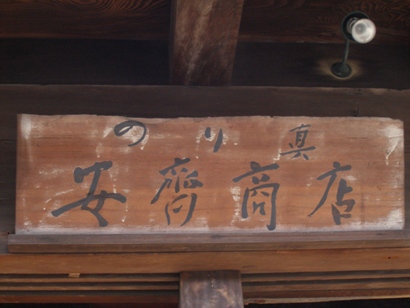 のり真
安齊商店